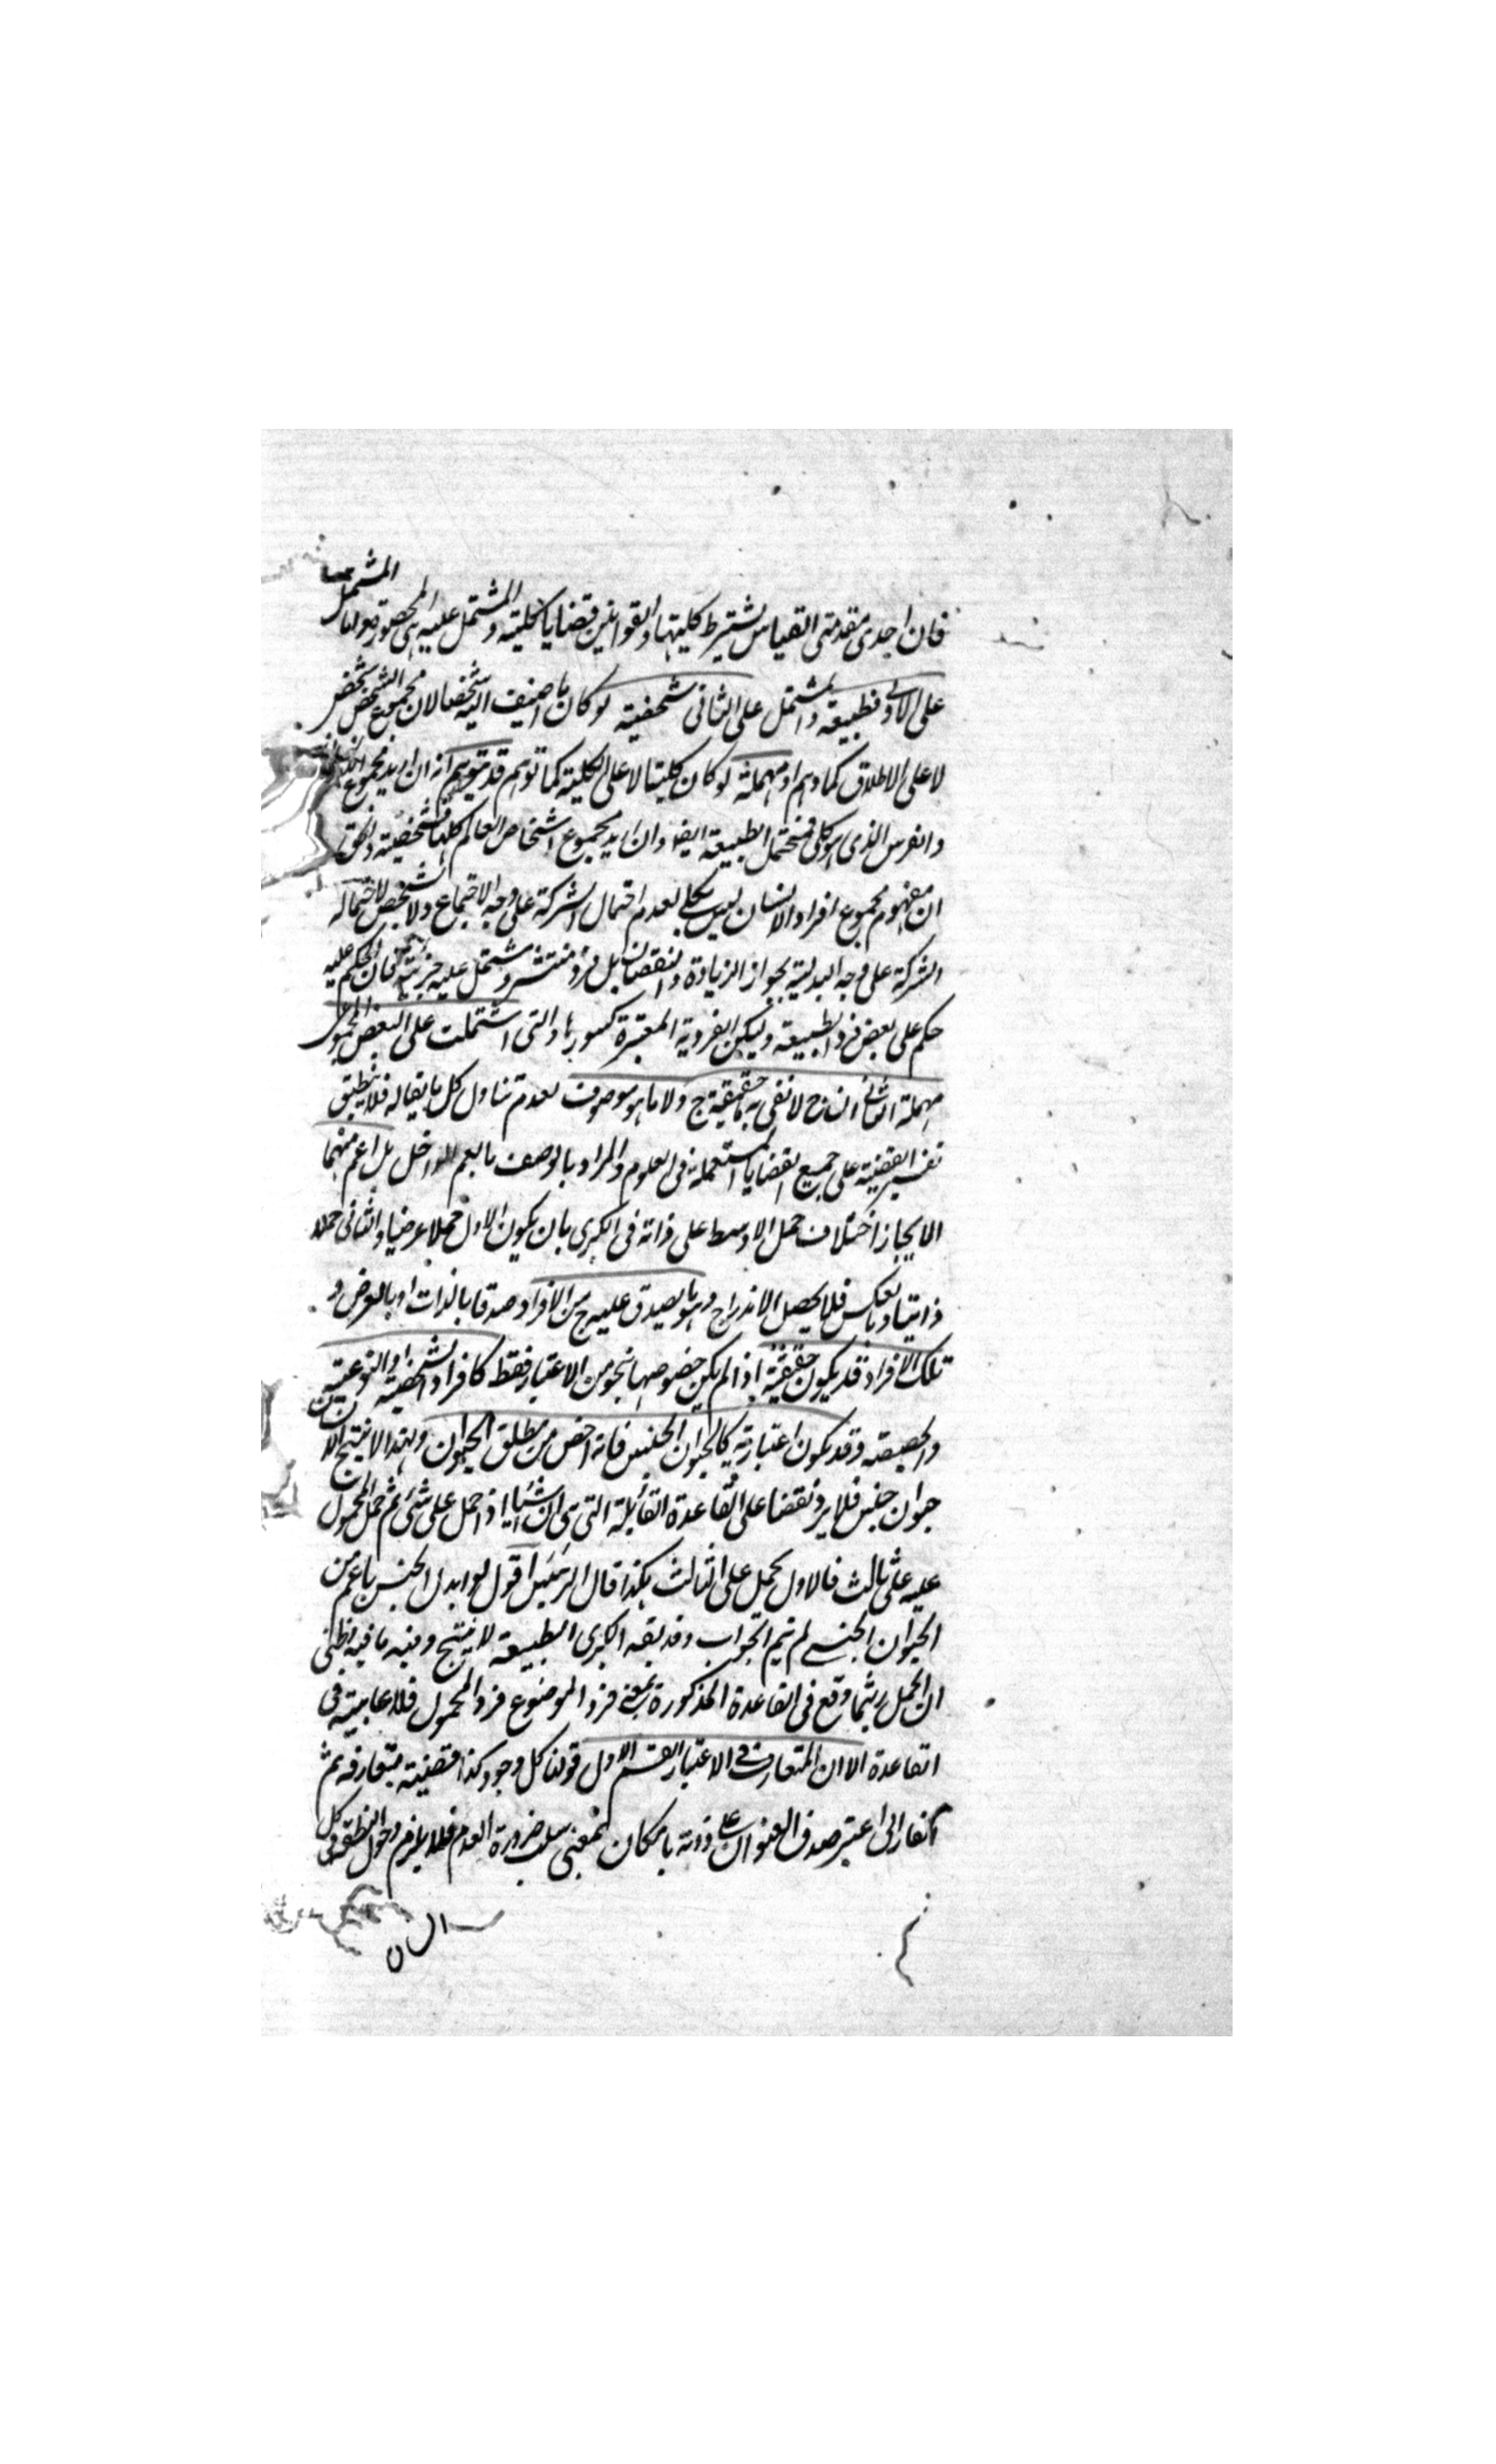 فان احدى مقدمتى القياس يشترط كليتها والقوانين قضايا كلية والمشتمل عليه هى المحصورة واما المشتمل
على الاول فطبيعة والمشتمل على الثانى شخصية لو كان ما اضيف اليه شخصا لان مجموع الشخص شخص
لا على الاطلاق كما وهم او مهملة لو كان كليتا لا على الكلية كما توهم قد يتوهم انه ان اريد مجموع
والفرس الذى هو كلى فتحتمل الطبيعة ايضا وان اريد مجموع اشخاص العالم كلها فشخصية والحق
ان مفهوم مجموع افراد الانسان ليس بكلى لعدم احتمال الشركة على وجه الاجتماع ولا بشخص لاحتماله
الشركة على وجه البدلية بجواز الزيادة والنقصان بل فرد منتشر ومشتمل عليه جزئية فان الحكم عليه
حكم على بعض فرد الطبيعة وليكن الفردية المعتبرة كسورها والتى اشتملت على البعض المجموعى
مهملة الثانى ان ج لا نعنى به ما حقيقته ج ولا ما هو موصوف لعدم تناول كل ما يقال له فلا ينطبق
تفسير القضية على جميع القضايا المستعملة فى العلوم والمراد بالوصف ما يعم الداخل بل اعم منهما
الايجاز اختلاف حمل الاوسط على ذاته فى الكبرى بان يكون الاول حملا عرضيا والثانى حملا
ذاتيا وبالعكس فلا يحصل الاندراج وهو ما يصدق عليه ج من الافراد صدقا بالذات او بالعرض و
تلك الافراد قد يكون حقيقية اذا لم يكن خصوصها بنحو من الاعتبار فقط كافراد الشخصية او النوعية
والحصيصة وقد يكون اعتبارية كالحيوان الجنس فانه اخص من مطلق الحيوان ولهذا لا ينتج الا
حيوان جنس فلا يرد نقضا على القاعدة القائلة التى هى ان شيئا اذا حمل على شئ ثم حمل المحمول
عليه على ثالث فالاول يحمل على الثالث هكذا قال الرئيس اقول لو ابدل الجنس باعم من
الحيوان الجنسى لم يتم الجواب وقد يقع الكبرى الطبيعة لا ينتج وفيه ما فيه اظنى
ان الحمل ربما وقع فى القاعدة المذكورة بمعنى فرد الموضوع فرد المحمول فلا عابية فى
القاعدة الا ان المتعارف فى الاعتبار القسم الاول قولنا كل وجود كذا قضية متعارفة ثم
الفارابى اعتبر صدق العنوان على ذاته بالامكان بمعنى سلب ضرورة العدم فلا يلزم دخول النطفة فى كل